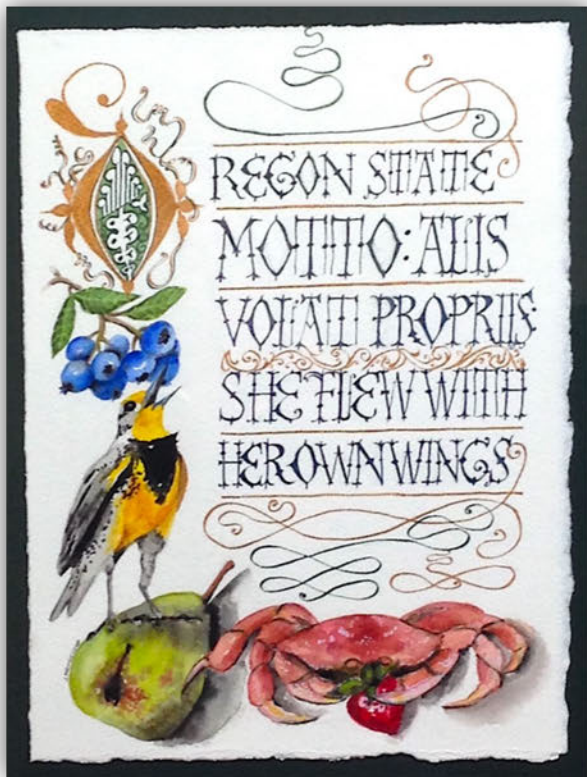 OREGON STATE
MOTTO: ALIS
VOLAT PROPRIIS:
SHE FLEW WITH
HER OWN WINGS